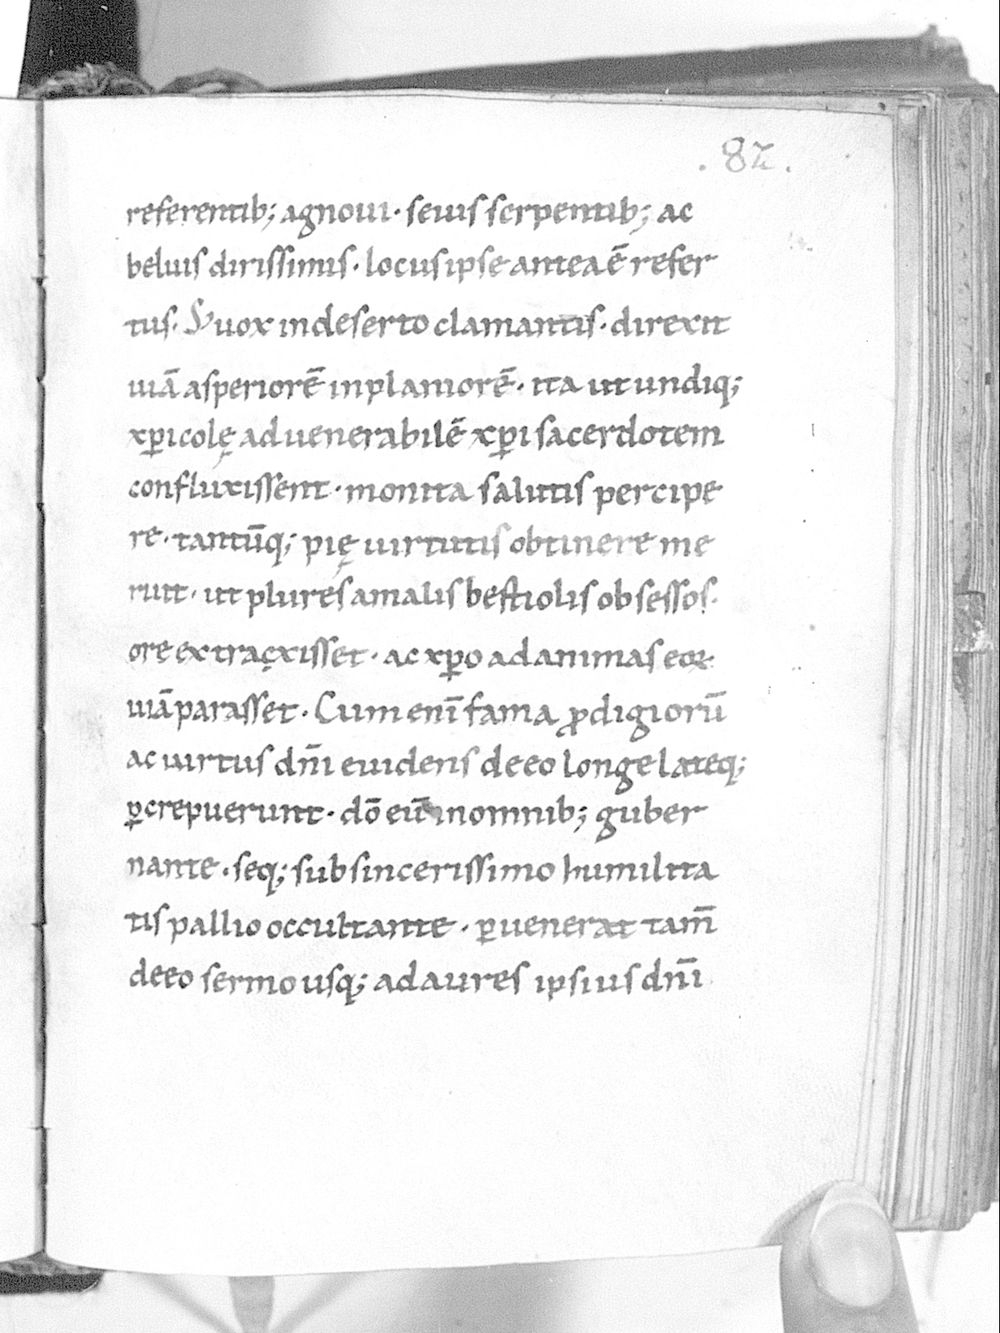 .82.
referentib; agnoui· seuis serpentib; ac
beluis dirissimis· locus ipse antea ē refer
tus. S; uox in deserto clamantis· direxit
uiā asperiorē in planiorē· ita ut undiq;
xp̄icolę ad uenerabilē xp̄i sacerdotem
confluxissent· monita salutis percipe
re· tantūq; pię uirtutis obtinere me
ruit· ut plures a malis bestiolis obsessos·
ore extraęxisset· ac xp̄o ad animas eoꝝ
uiā parasset· Cum enī fama ꝓdigiorū
ac uirtus dn̄i euidens de eo longe lateq;
ꝑcrepuerunt· dō eū in omnib; guber
nante· seq; sub sincerissimo humilita
tis pallio occultante· ꝑuenerat tam̄
de eo sermo usq; ad aures ipsius dn̄i